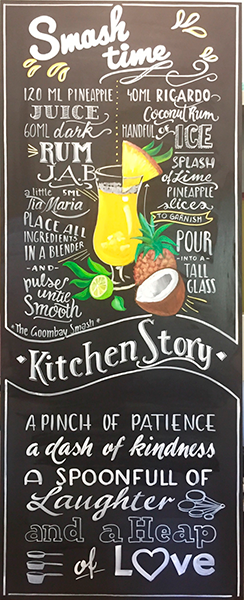 Smash
time
120 ML PINEAPPLE
JUICE
60ML dark
RUM
J.A.B
a little 5ML
Tia Maria
PLACE ALL
INGREDIENTS
IN A BLENDER
-AND-
pulse
until
Smooth
*The Goombay Smash*
40ML RICARDO
Coconut Rum
HANDFUL OF
ICE
SPLASH
of Lime
PINEAPPLE
slices
TO GARNISH
POUR
-INTO A-
TALL
GLASS
•Kitchen Story•
A PINCH OF PATIENCE
a dash of kindness
A SPOONFULL OF
Laughter
and a Heap
of Love